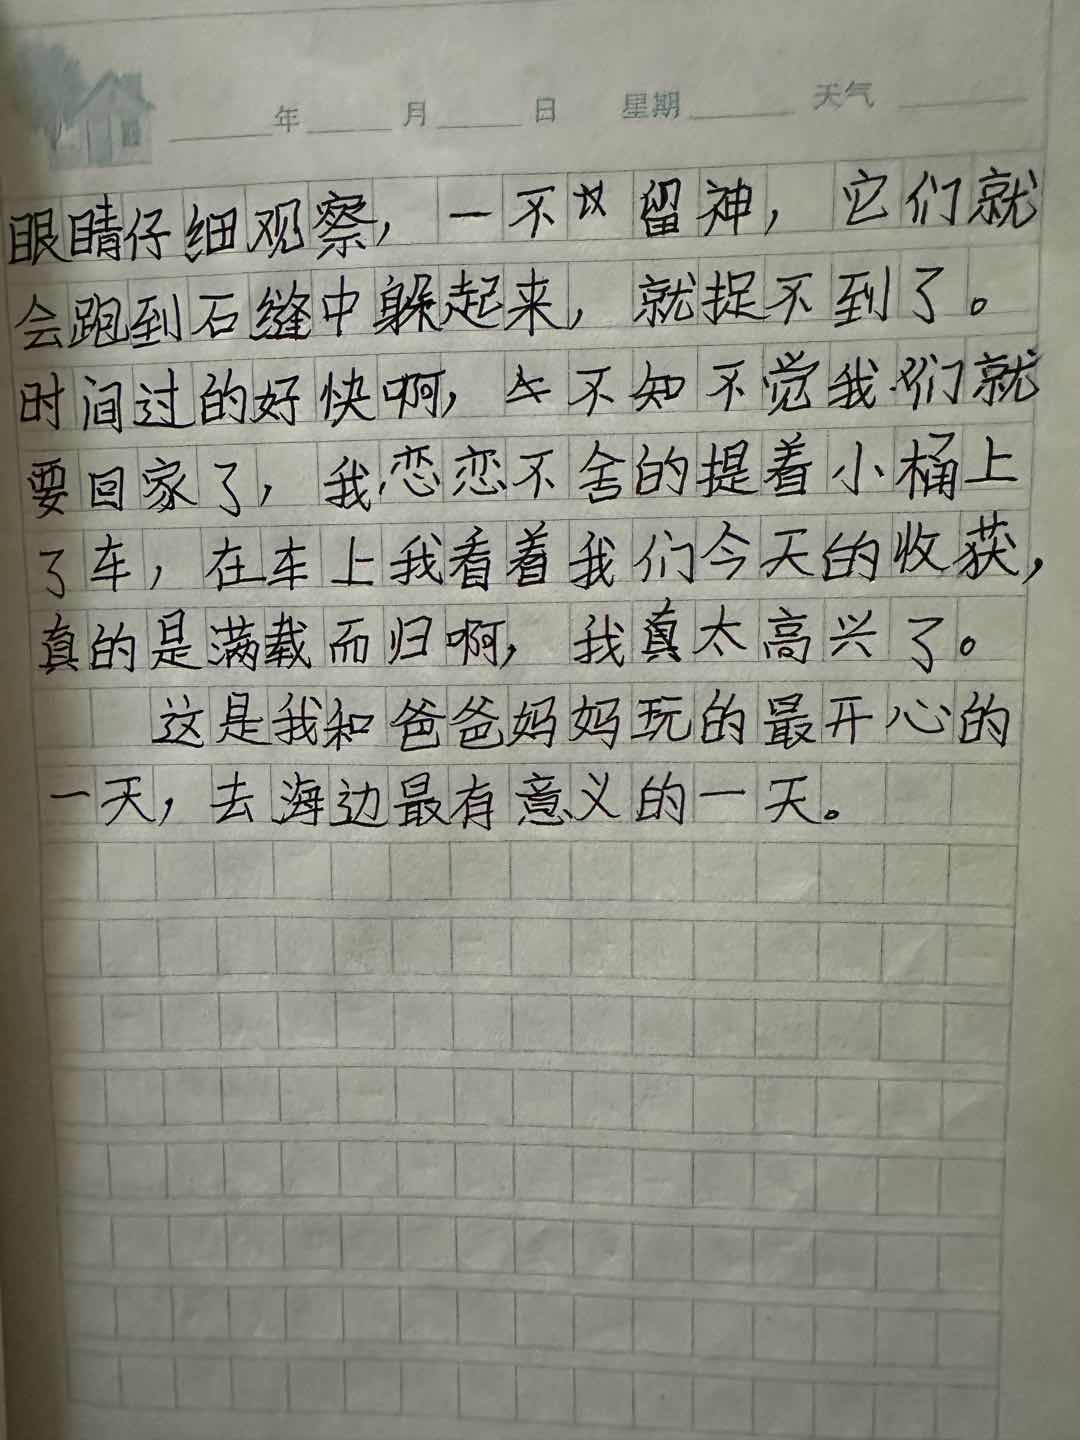 年 月 日 星期 天气
眼睛仔细观察，一不留神，它们就
会跑到石缝中躲起来，就捉不到了。
时间过的好快啊，不知不觉我们就
要回家了，我恋恋不舍的提着小桶上
了车，在车上我看着我们今天的收获，
真的是满载而归啊，我真太高兴了。
这是我和爸爸妈妈玩的最开心的
一天，去海边最有意义的一天。